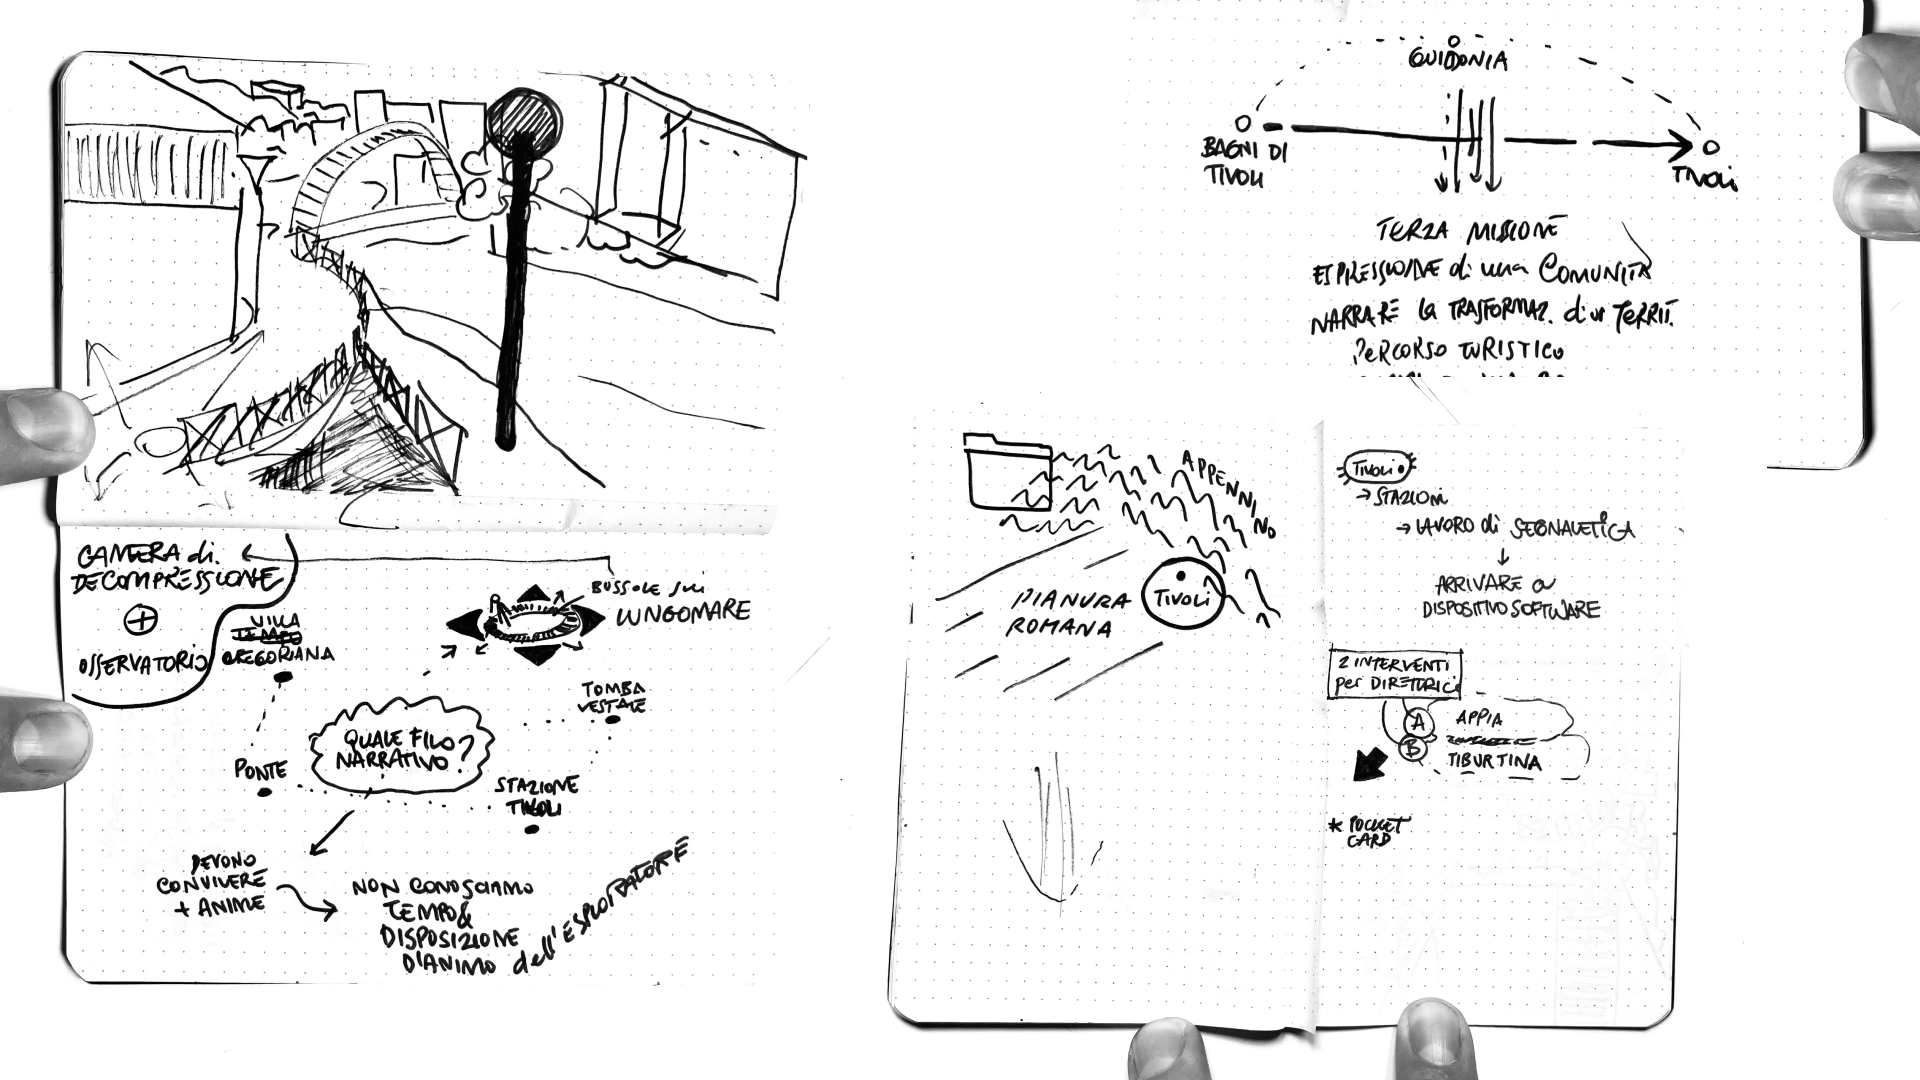 CAMERA di
DECOMPRESSIONE
+
OSSERVATORIO
VILLA
TEMPO
GREGORIANA
BUSSOLE sui
LUNGOMARE
TOMBA
VESTALE
QUALE FILO
NARRATIVO?
PONTE
STAZIONE
TIVOLI
DEVONO
CONVIVERE
+ ANIME
NON CONOSCIAMO
TEMPO &
DISPOSIZIONE
D'ANIMO dell'ESPLORATORE
GUIDONIA
BAGNI DI
TIVOLI
TIVOLI
TERZA MISSIONE
ESPRESSIONE di una COMUNITÀ
NARRARE la TRASFORMAZ. di un TERRIT.
PERCORSO TURISTICO
APPENNINO
PIANURA
ROMANA
TIVOLI
TIVOLI
→ STAZIONI
→ LAVORO di SEGNALETICA
ARRIVARE a
DISPOSITIVO SOFTWARE
2 INTERVENTI
per DIRETTRICE
A APPIA
B TIBURTINA
* POCKET
CARD